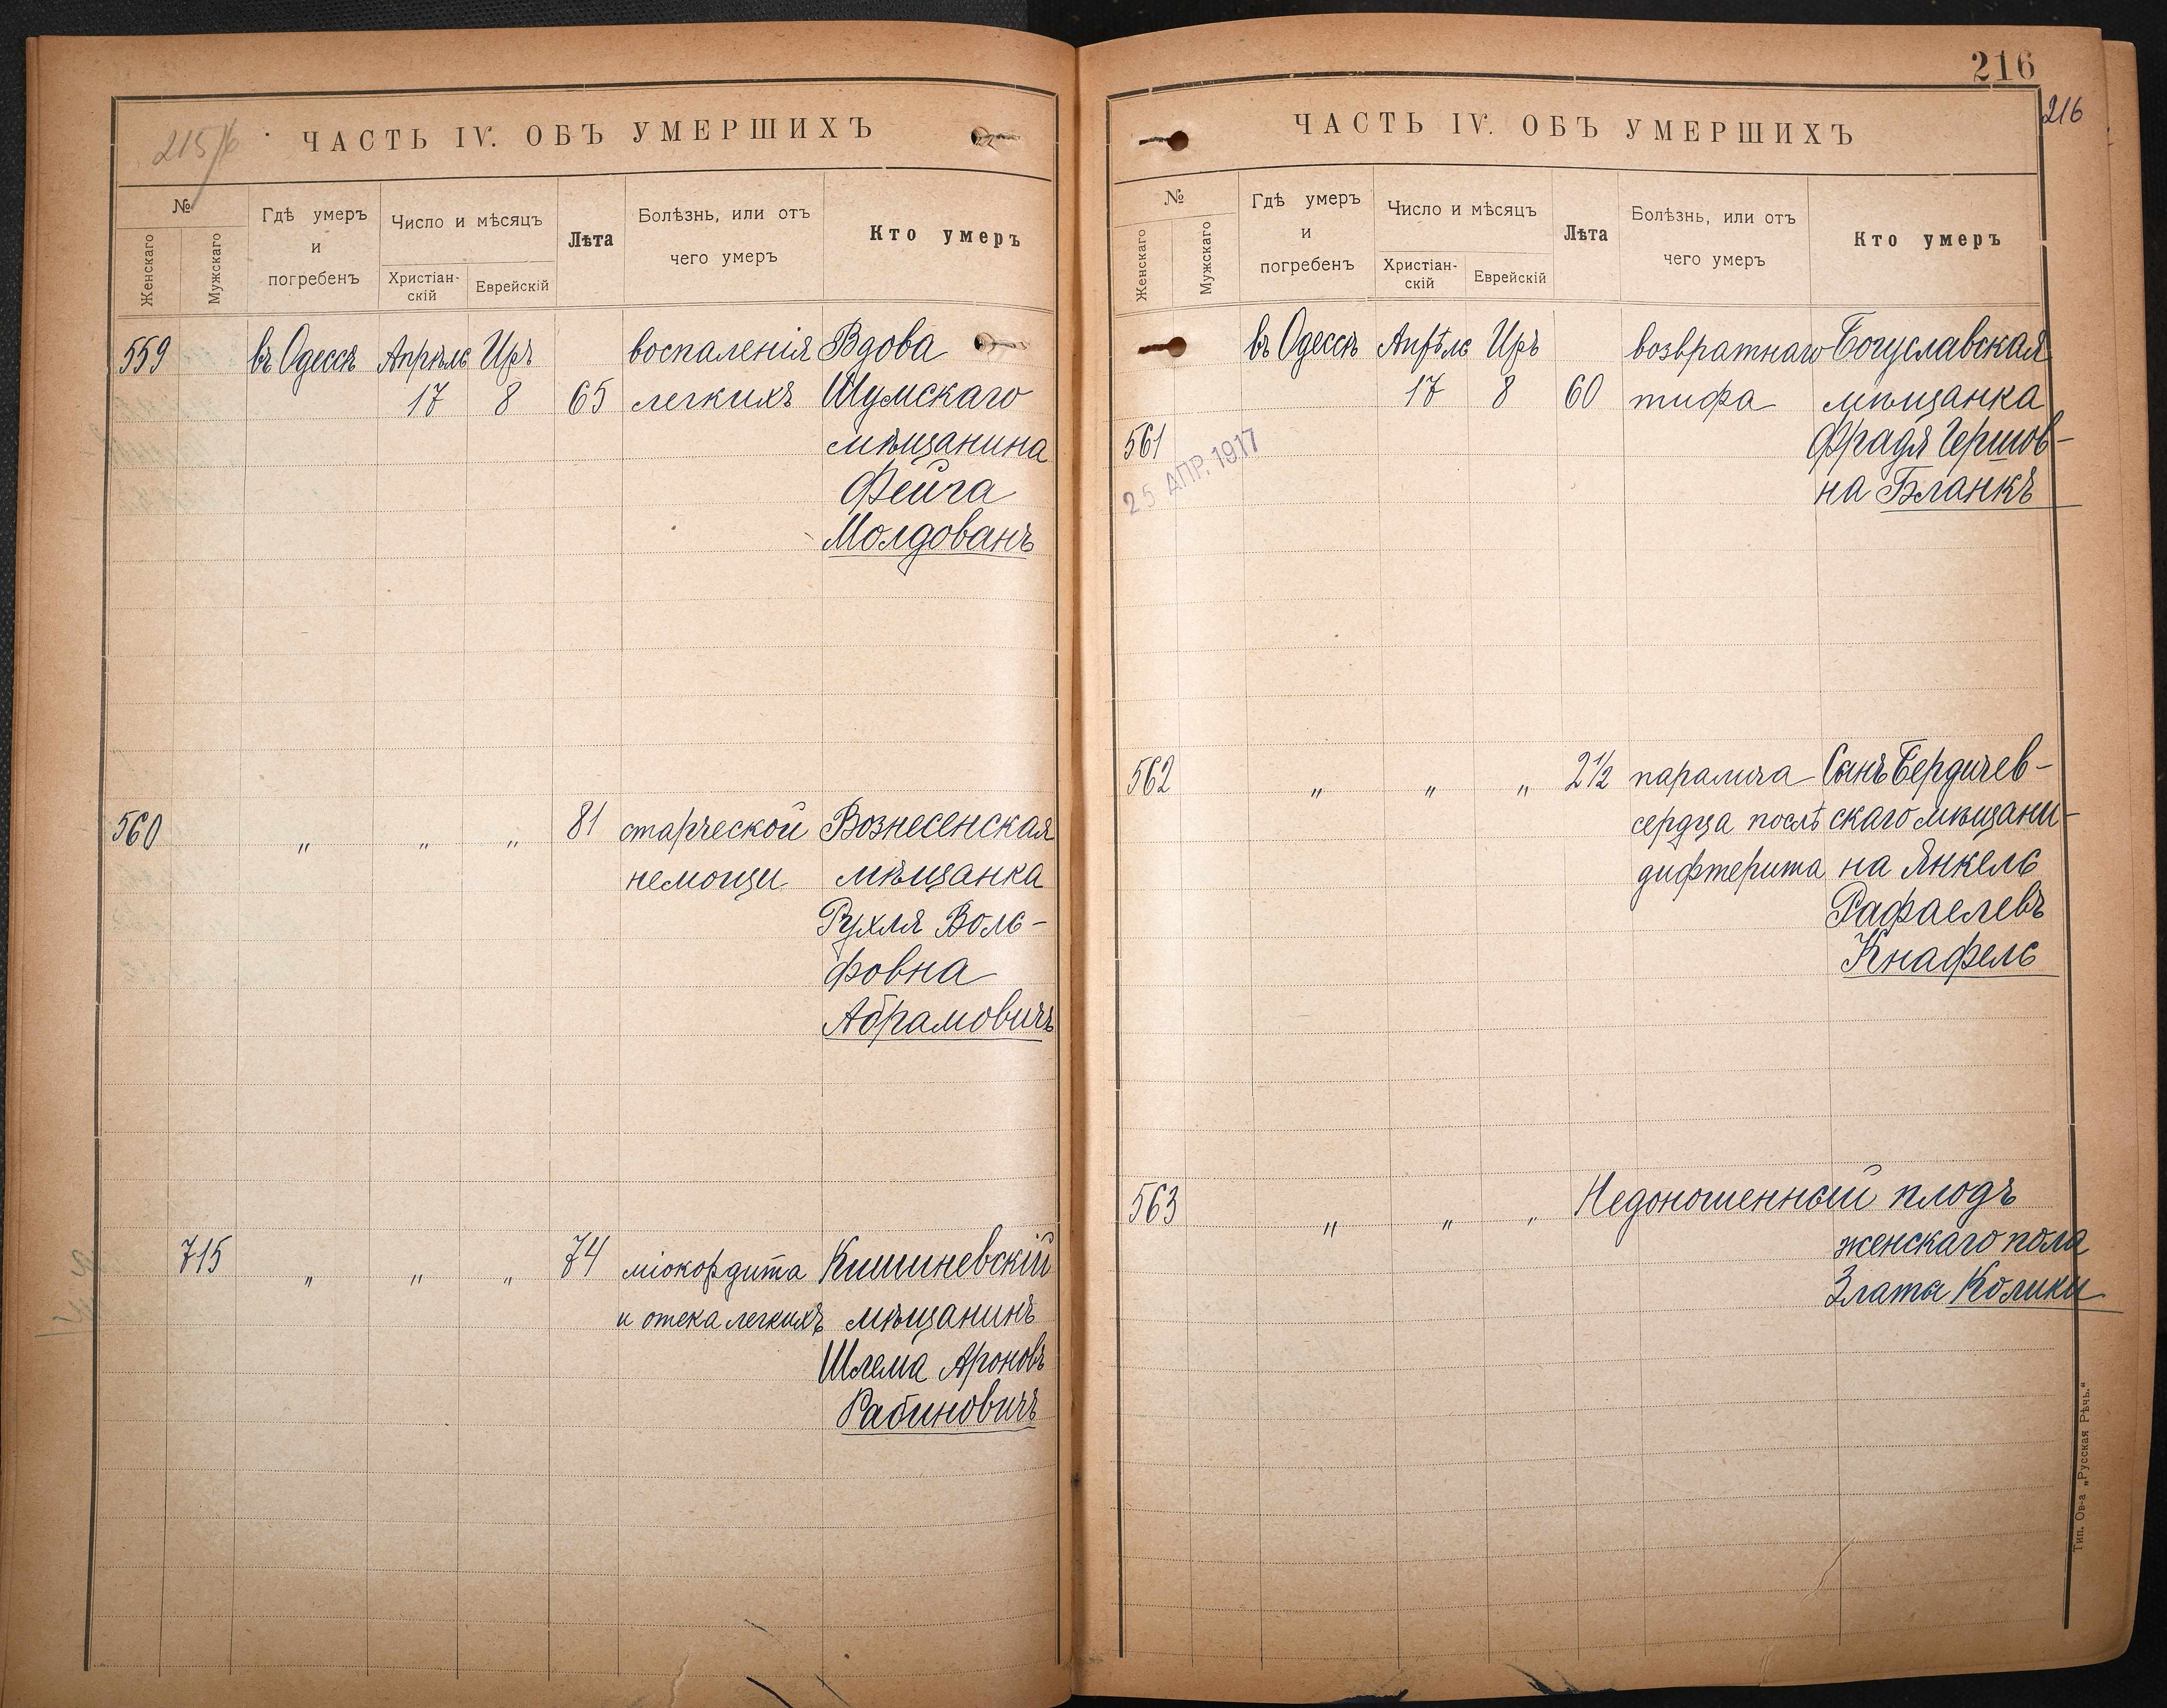 215/б
ЧАСТЬ IV. ОБЪ УМЕРШИХЪ
№
Женскаго
Мужскаго
Гдѣ умеръ
и
погребенъ
Число и мѣсяцъ
Христіан-
скій
Еврейскій
Лѣта
Болѣзнь, или отъ
чего умеръ
Кто умеръ
559 въ Одессѣ Апрѣль Иръ воспаленія Вдова
17 8 65 легкихъ Шумскаго
мѣщанина
Фейга
Молдованъ
560 " " " 81 старческой Вознесенская
немощи мѣщанка
Рухля Воль-
фовна
Абрамовичъ
715 " " " 74 міокордита Кишиневскій
и отека легкихъ мѣщанинъ
Шлема Ароновъ
Рабиновичъ
216
216
ЧАСТЬ IV. ОБЪ УМЕРШИХЪ
№
Женскаго
Мужскаго
Гдѣ умеръ
и
погребенъ
Число и мѣсяцъ
Христіан-
скій
Еврейскій
Лѣта
Болѣзнь, или отъ
чего умеръ
Кто умеръ
въ Одессѣ Апрѣль Иръ возвратнаго Богуславская
17 8 60 тифа мѣщанка
561 Фрадя Гершов-
на Бланкъ
25 АПР. 1917
562 " " " 2½ паралича Сынъ Бердичев-
сердца послѣ скаго мѣщани-
дифтерита на Янкель
Рафаелевъ
Кнафель
563 " " " Недоношенный плодъ
женскаго пола
Златы Колики
Тип. Ов-а „Русская Рѣчь.“